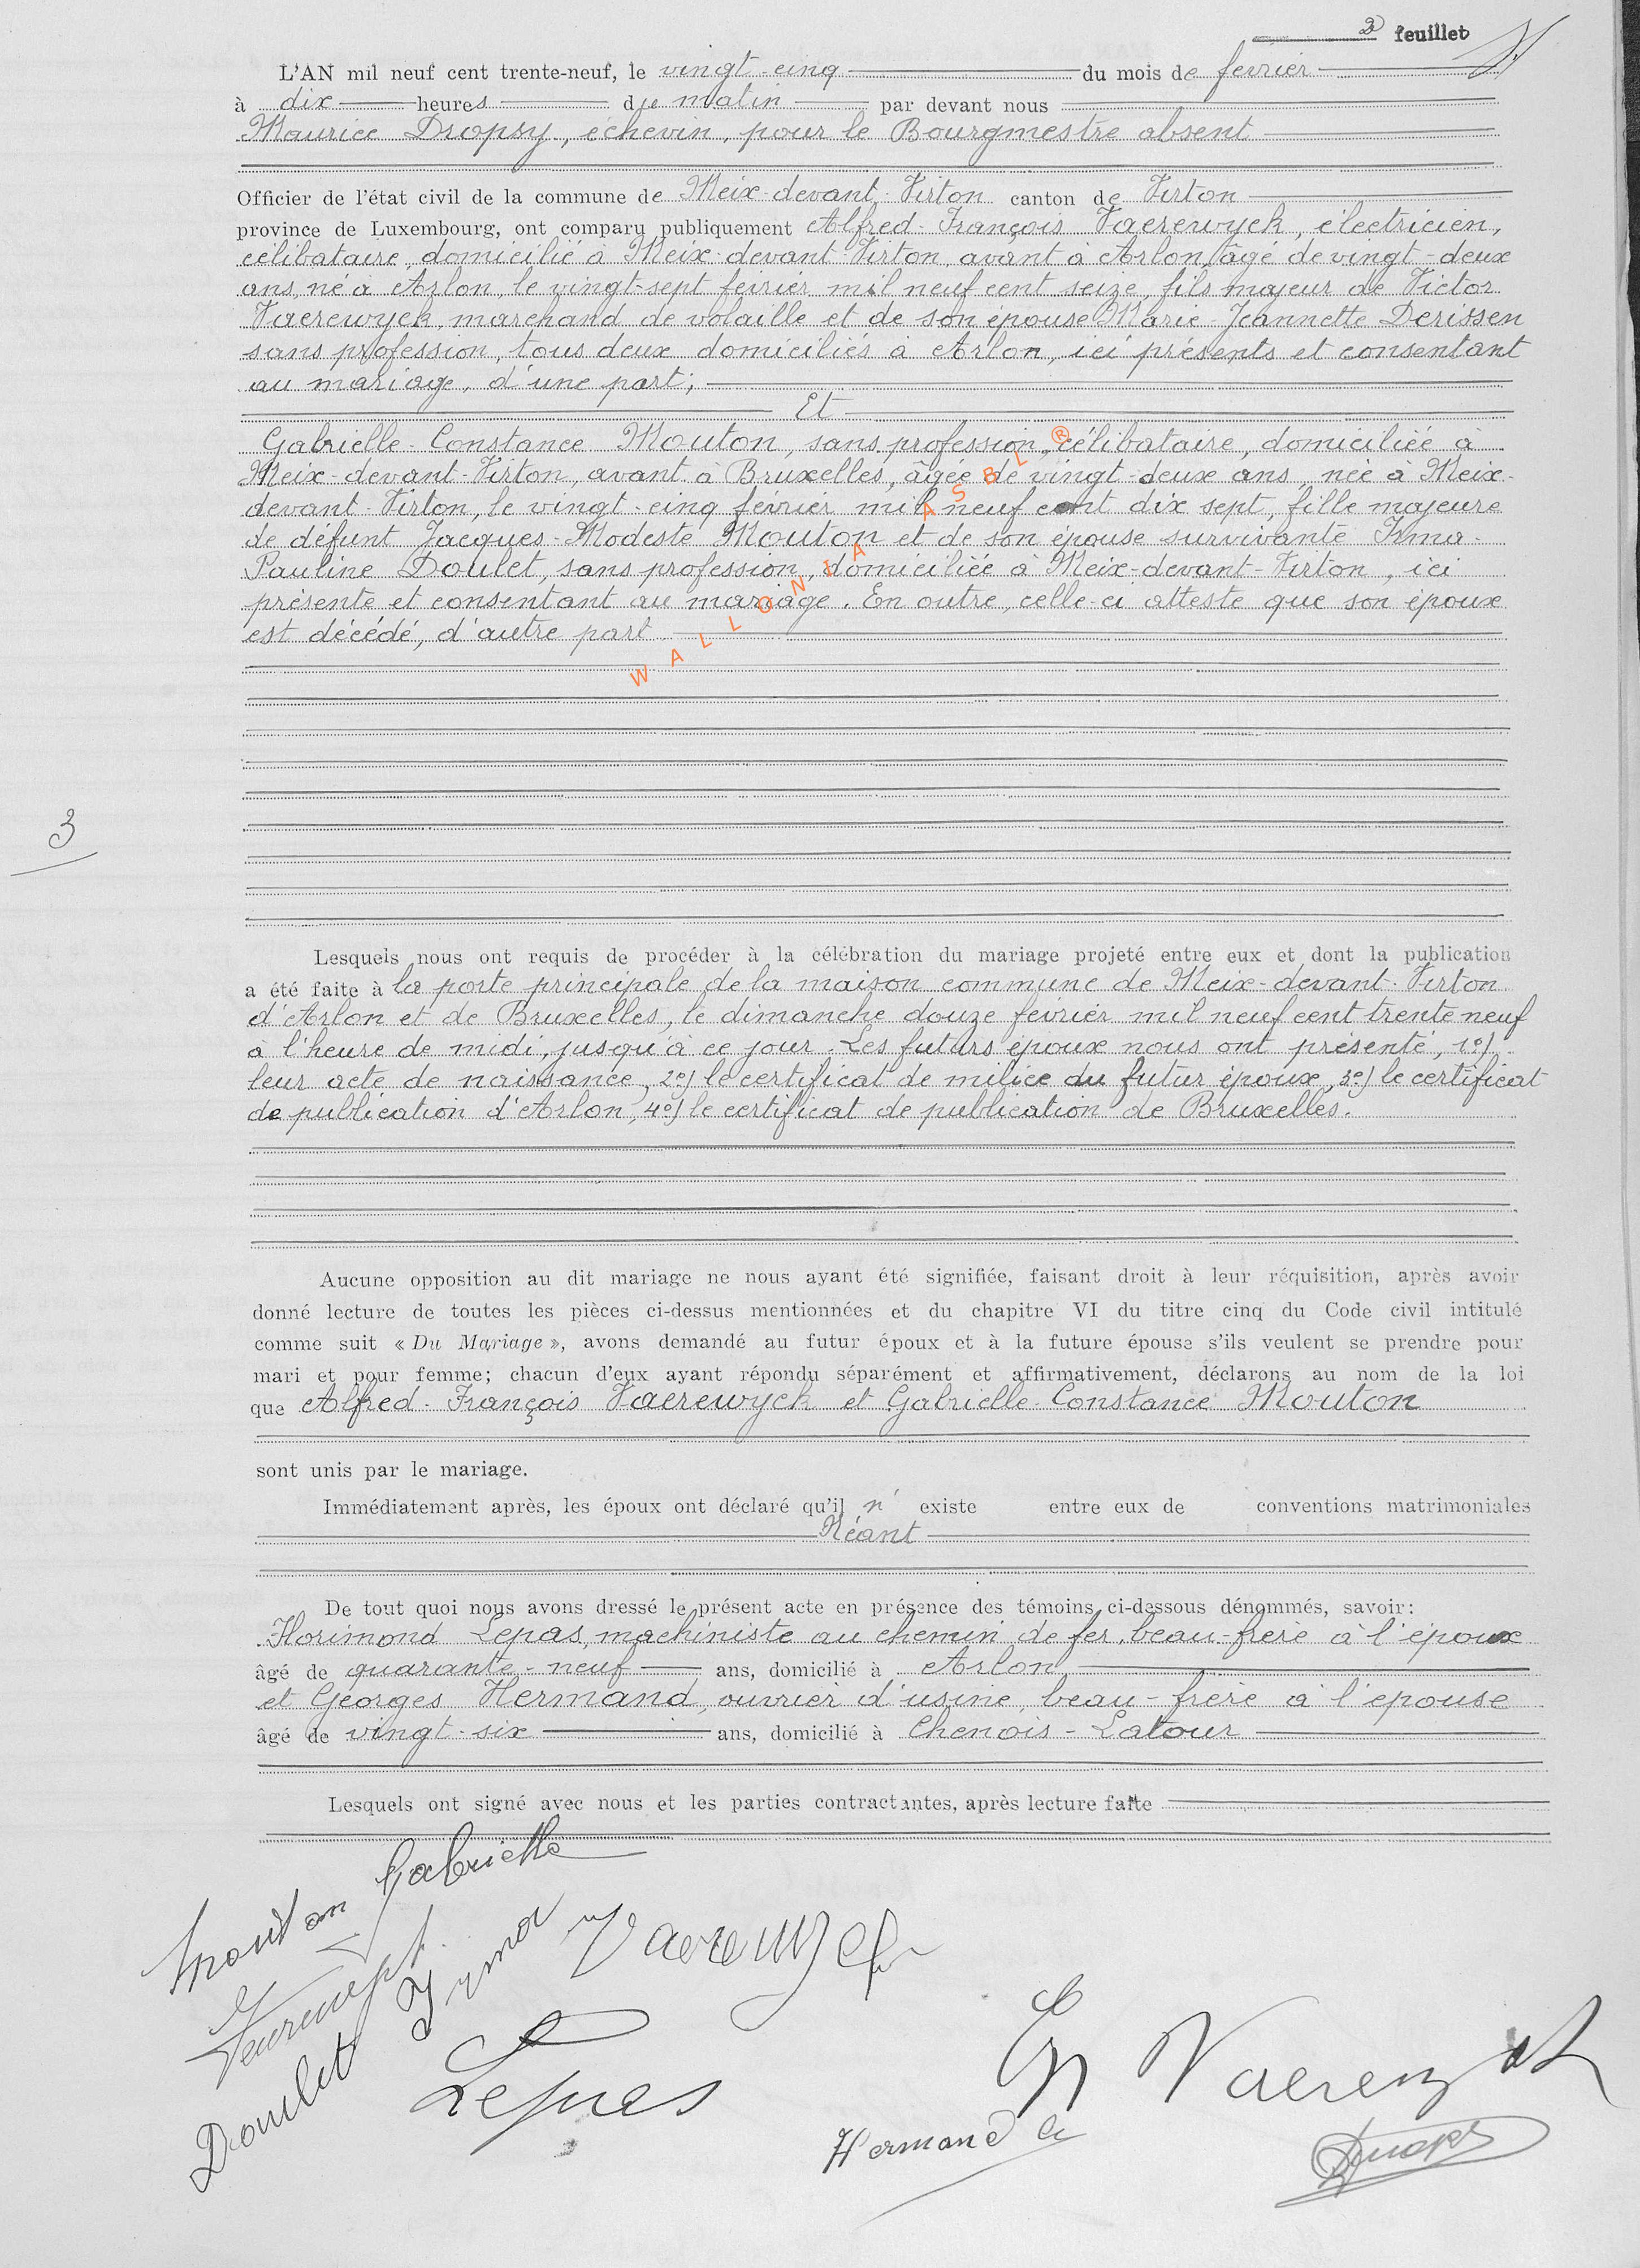 3 feuillet
L'AN mil neuf cent trente-neuf, le vingt-cinq du mois de février
à dix heures du matin par devant nous
Maurice Dropsy, échevin, pour le Bourgmestre absent
Officier de l'état civil de la commune de Meix-devant-Virton canton de Virton
province de Luxembourg, ont comparu publiquement Alfred-François Vaerewyck, électricien,
célibataire, domicilié à Meix-devant-Virton, avant à Arlon, âgé de vingt-deux
ans, né à Arlon, le vingt-sept février mil neuf cent seize, fils majeur de Victor
Vaerewyck, marchand de volaille et de son épouse Marie-Jeannette Derissen
sans profession, tous deux domiciliés à Arlon, ici présents et consentant
au mariage, d'une part;
Et
Gabrielle-Constance Mouton, sans profession, célibataire, domiciliée à
Meix-devant-Virton, avant à Bruxelles, âgée de vingt-deux ans, née à Meix-
devant-Virton, le vingt-cinq février mil neuf cent dix sept, fille majeure
de défunt Jacques-Modeste Mouton et de son épouse survivante Irma-
Pauline Doulet, sans profession, domiciliée à Meix-devant-Virton, ici
présente et consentant au mariage. En outre, celle-ci atteste que son époux
est décédé, d'autre part
WALLONIA ASBL ®
3
Lesquels nous ont requis de procéder à la célébration du mariage projeté entre eux et dont la publication
a été faite à la porte principale de la maison commune de Meix-devant-Virton
d'Arlon et de Bruxelles, le dimanche douze février mil neuf cent trente neuf
à l'heure de midi, jusqu'à ce jour. Les futurs époux nous ont présenté, 1°)
leur acte de naissance, 2°) le certificat de milice du futur époux, 3°) le certificat
de publication d'Arlon, 4°) le certificat de publication de Bruxelles.
Aucune opposition au dit mariage ne nous ayant été signifiée, faisant droit à leur réquisition, après avoir
donné lecture de toutes les pièces ci-dessus mentionnées et du chapitre VI du titre cinq du Code civil intitulé
comme suit « Du Mariage », avons demandé au futur époux et à la future épouse s'ils veulent se prendre pour
mari et pour femme; chacun d'eux ayant répondu séparément et affirmativement, déclarons au nom de la loi
que Alfred-François Vaerewyck et Gabrielle-Constance Mouton
sont unis par le mariage.
Immédiatement après, les époux ont déclaré qu'il n' existe entre eux de conventions matrimoniales
Néant
De tout quoi nous avons dressé le présent acte en présence des témoins ci-dessous dénommés, savoir:
Florimond Lepas, machiniste au chemin de fer, beau-frère à l'époux
âgé de quarante-neuf ans, domicilié à Arlon
et Georges Hermand, ouvrier d'usine, beau-frère à l'épouse
âgé de vingt-six ans, domicilié à Chenois-Latour
Lesquels ont signé avec nous et les parties contractantes, après lecture faite
Mouton Gabrielle
Doulet Irma
Vaerewyck
Lepas
Vaerewyck
Hermand G
Dropsy